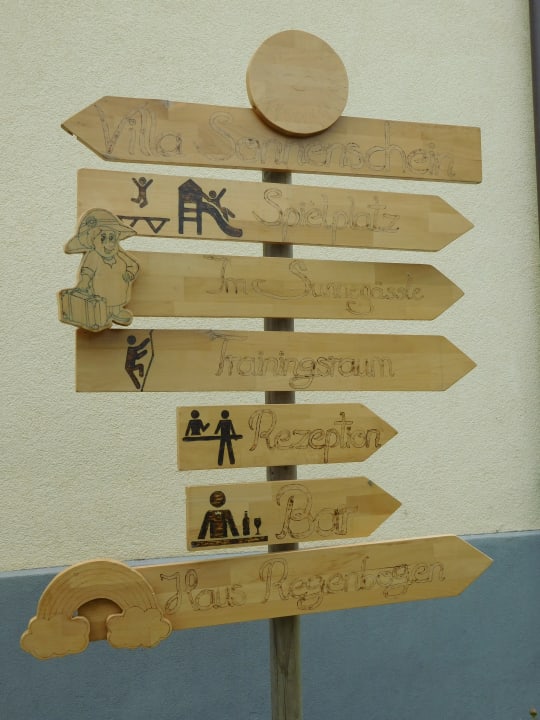 Villa Sonnenschein
Spielplatz
Im Sunnegässle
Trainingsraum
Rezeption
Bar
Haus Regenbogen